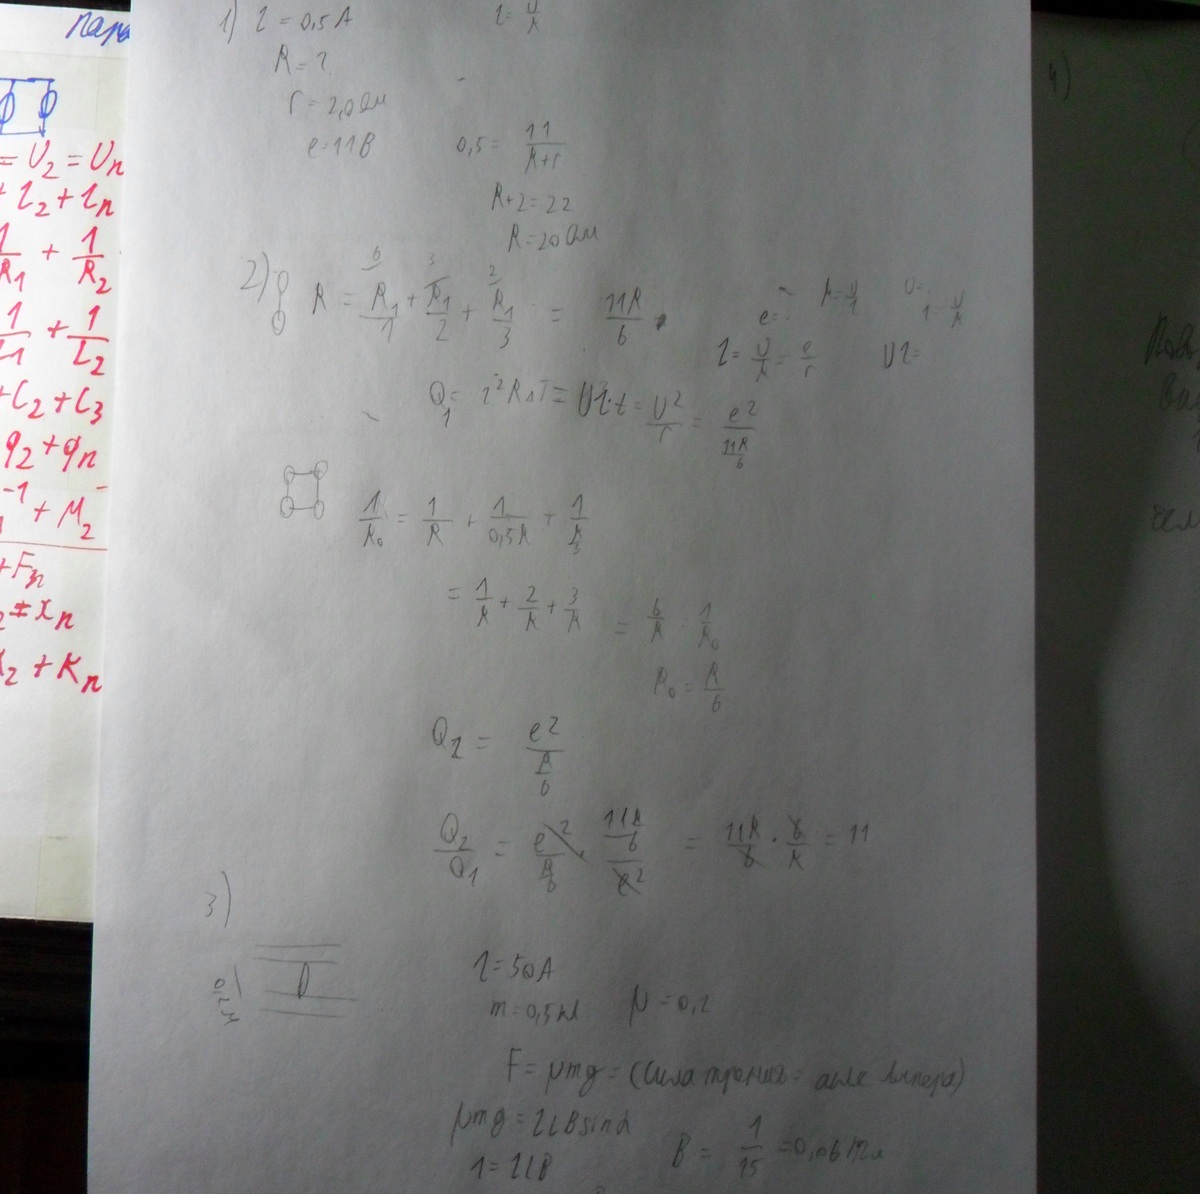 = U₂ = Uₙ
+ I₂ + Iₙ
1/R₁ + 1/R₂
1/L₁ + 1/L₂
+ C₂ + C₃
q₂ + qₙ
1) I = 0,5 А I = U/R
R = ?
r = 2,0 Ом
e = 11 В 0,5 = 11/(R+r)
R + 2 = 22
R = 20 Ом
2) R = R₁/1 + R₁/2 + R₁/3 = 11R/6
I = U/R = e/r UI =
Q₁ = I²R₁T = UI·t = U²/r = e²/(11R/6)
1/R₀ = 1/R + 1/0,5R + 1/(R/3)
= 1/R + 2/R + 3/R = 6/R = 1/R₀
R₀ = R/6
Q₂ = e²/(R/6)
Q₂/Q₁ = e²/(R/6) · (11R/6)/e² = 11R/6 · 6/R = 11
3)
0,2 м
I = 50 А
m = 0,5 кг μ = 0,2
F = μmg = (сила трения = силе Ампера)
μmg = ILB sin α
1 = ILB B = 1/15 =
4)